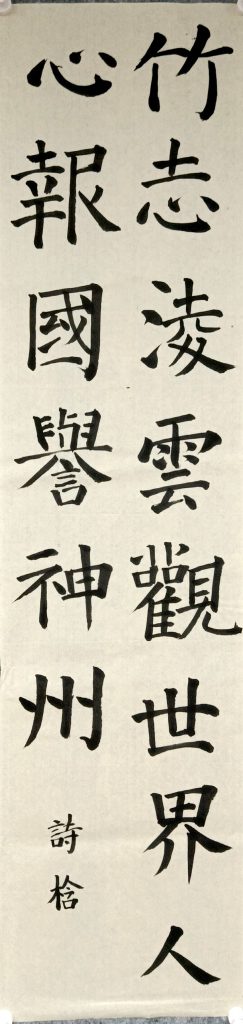 竹志淩雲觀世界人
心報國譽神州
詩棯